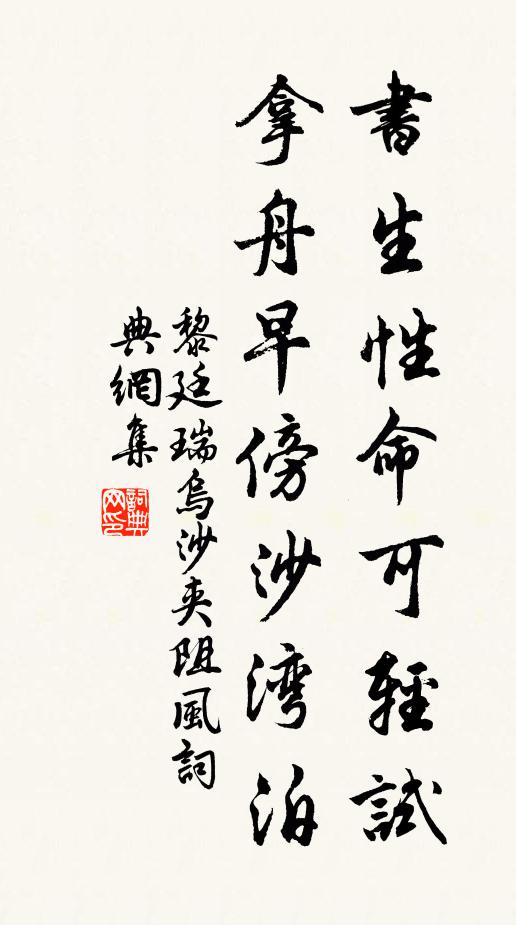 書生性命可輕試
拿舟早傍沙湾泊
黎廷瑞烏沙夾阻風詞
典網集
詞典
网印